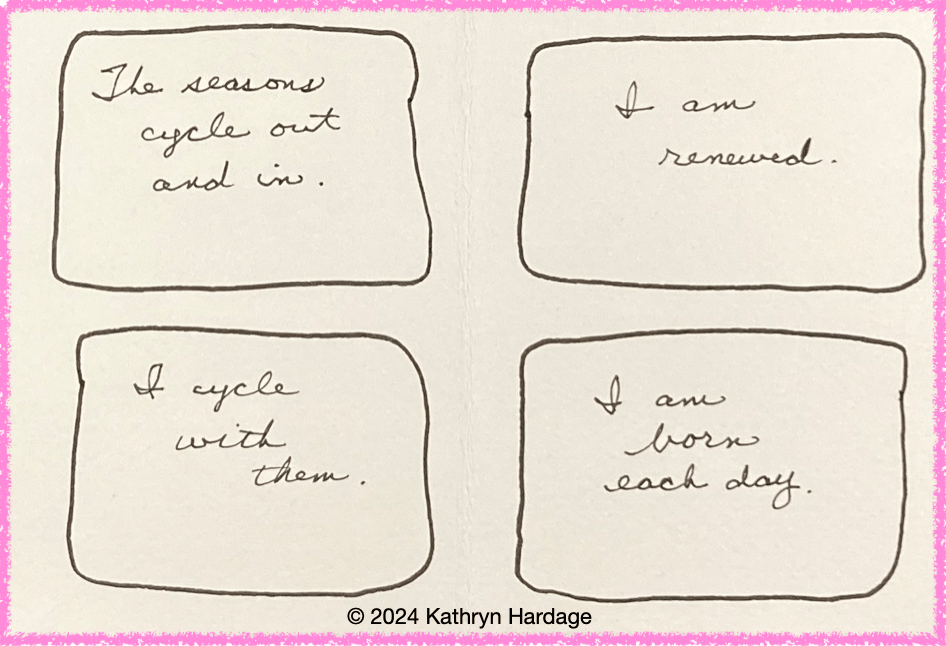 The seasons
cycle out
and in.
I am
renewed.
I cycle
with
them.
I am
born
each day.
© 2024 Kathryn Hardage